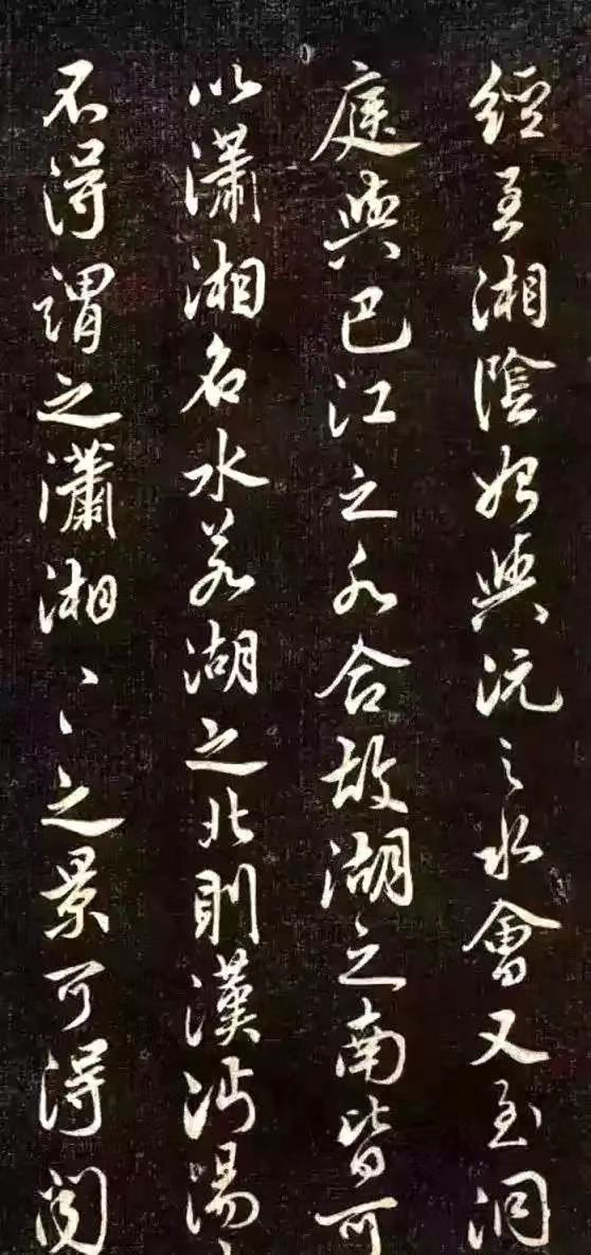 經至湘陰始與沅之水會又至洞
庭與巴江之水合故湖之南皆可
以瀟湘名水若湖之北則漢沔湯
不得謂之瀟湘〻〻之景可得聞